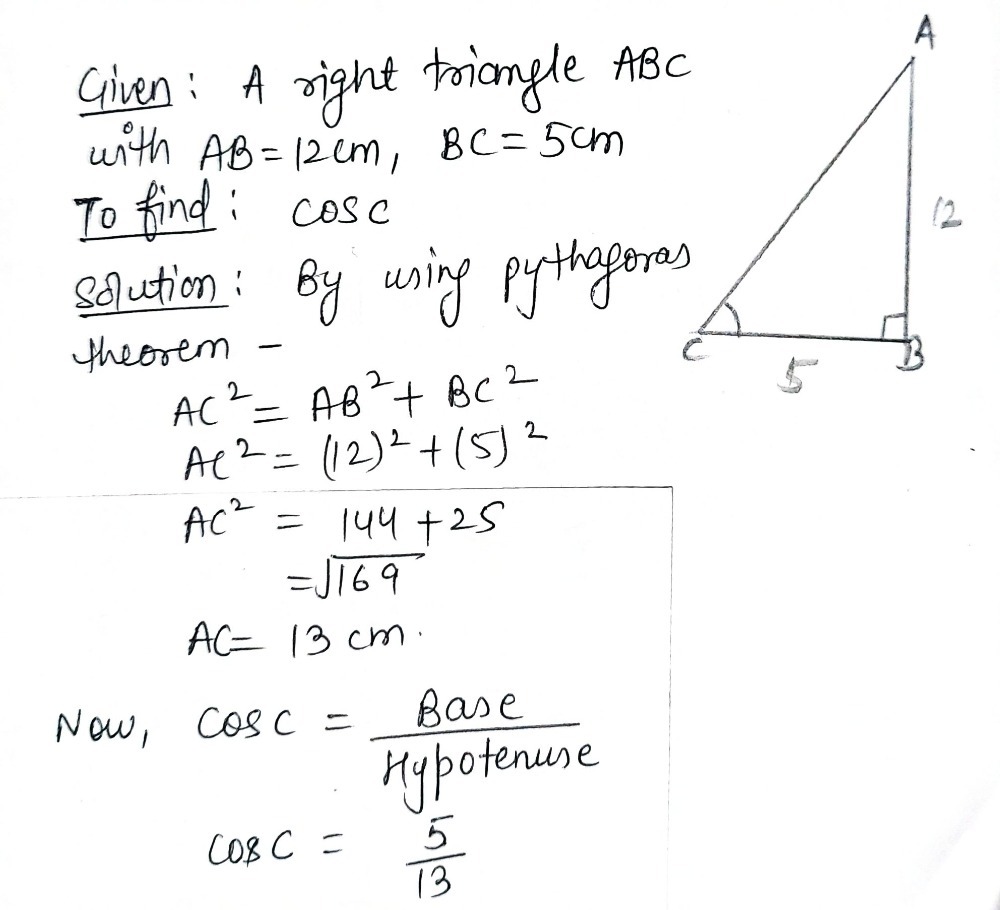 Given: A right triangle ABC
with AB = 12 cm, BC = 5 cm
To find: cos C
Solution: By using pythagoras
theorem -
AC² = AB² + BC²
AC² = (12)² + (5)²
AC² = 144 + 25
= √169
AC = 13 cm.
Now, cos C = Base / Hypotenuse
cos C = 5/13
A
12
C
B
5